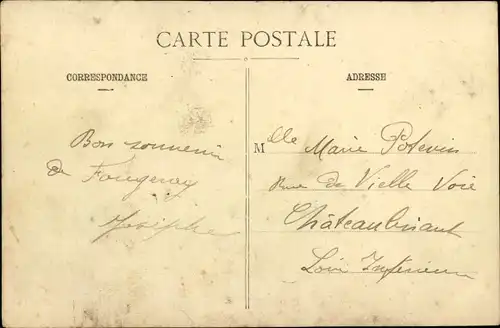 CARTE POSTALE
CORRESPONDANCE
ADRESSE
Bon souvenir
de Fougeray
Josèphe
Mlle Marie Potevin
Rue de Vielle Voie
Châteaubriant
Loire Inférieure